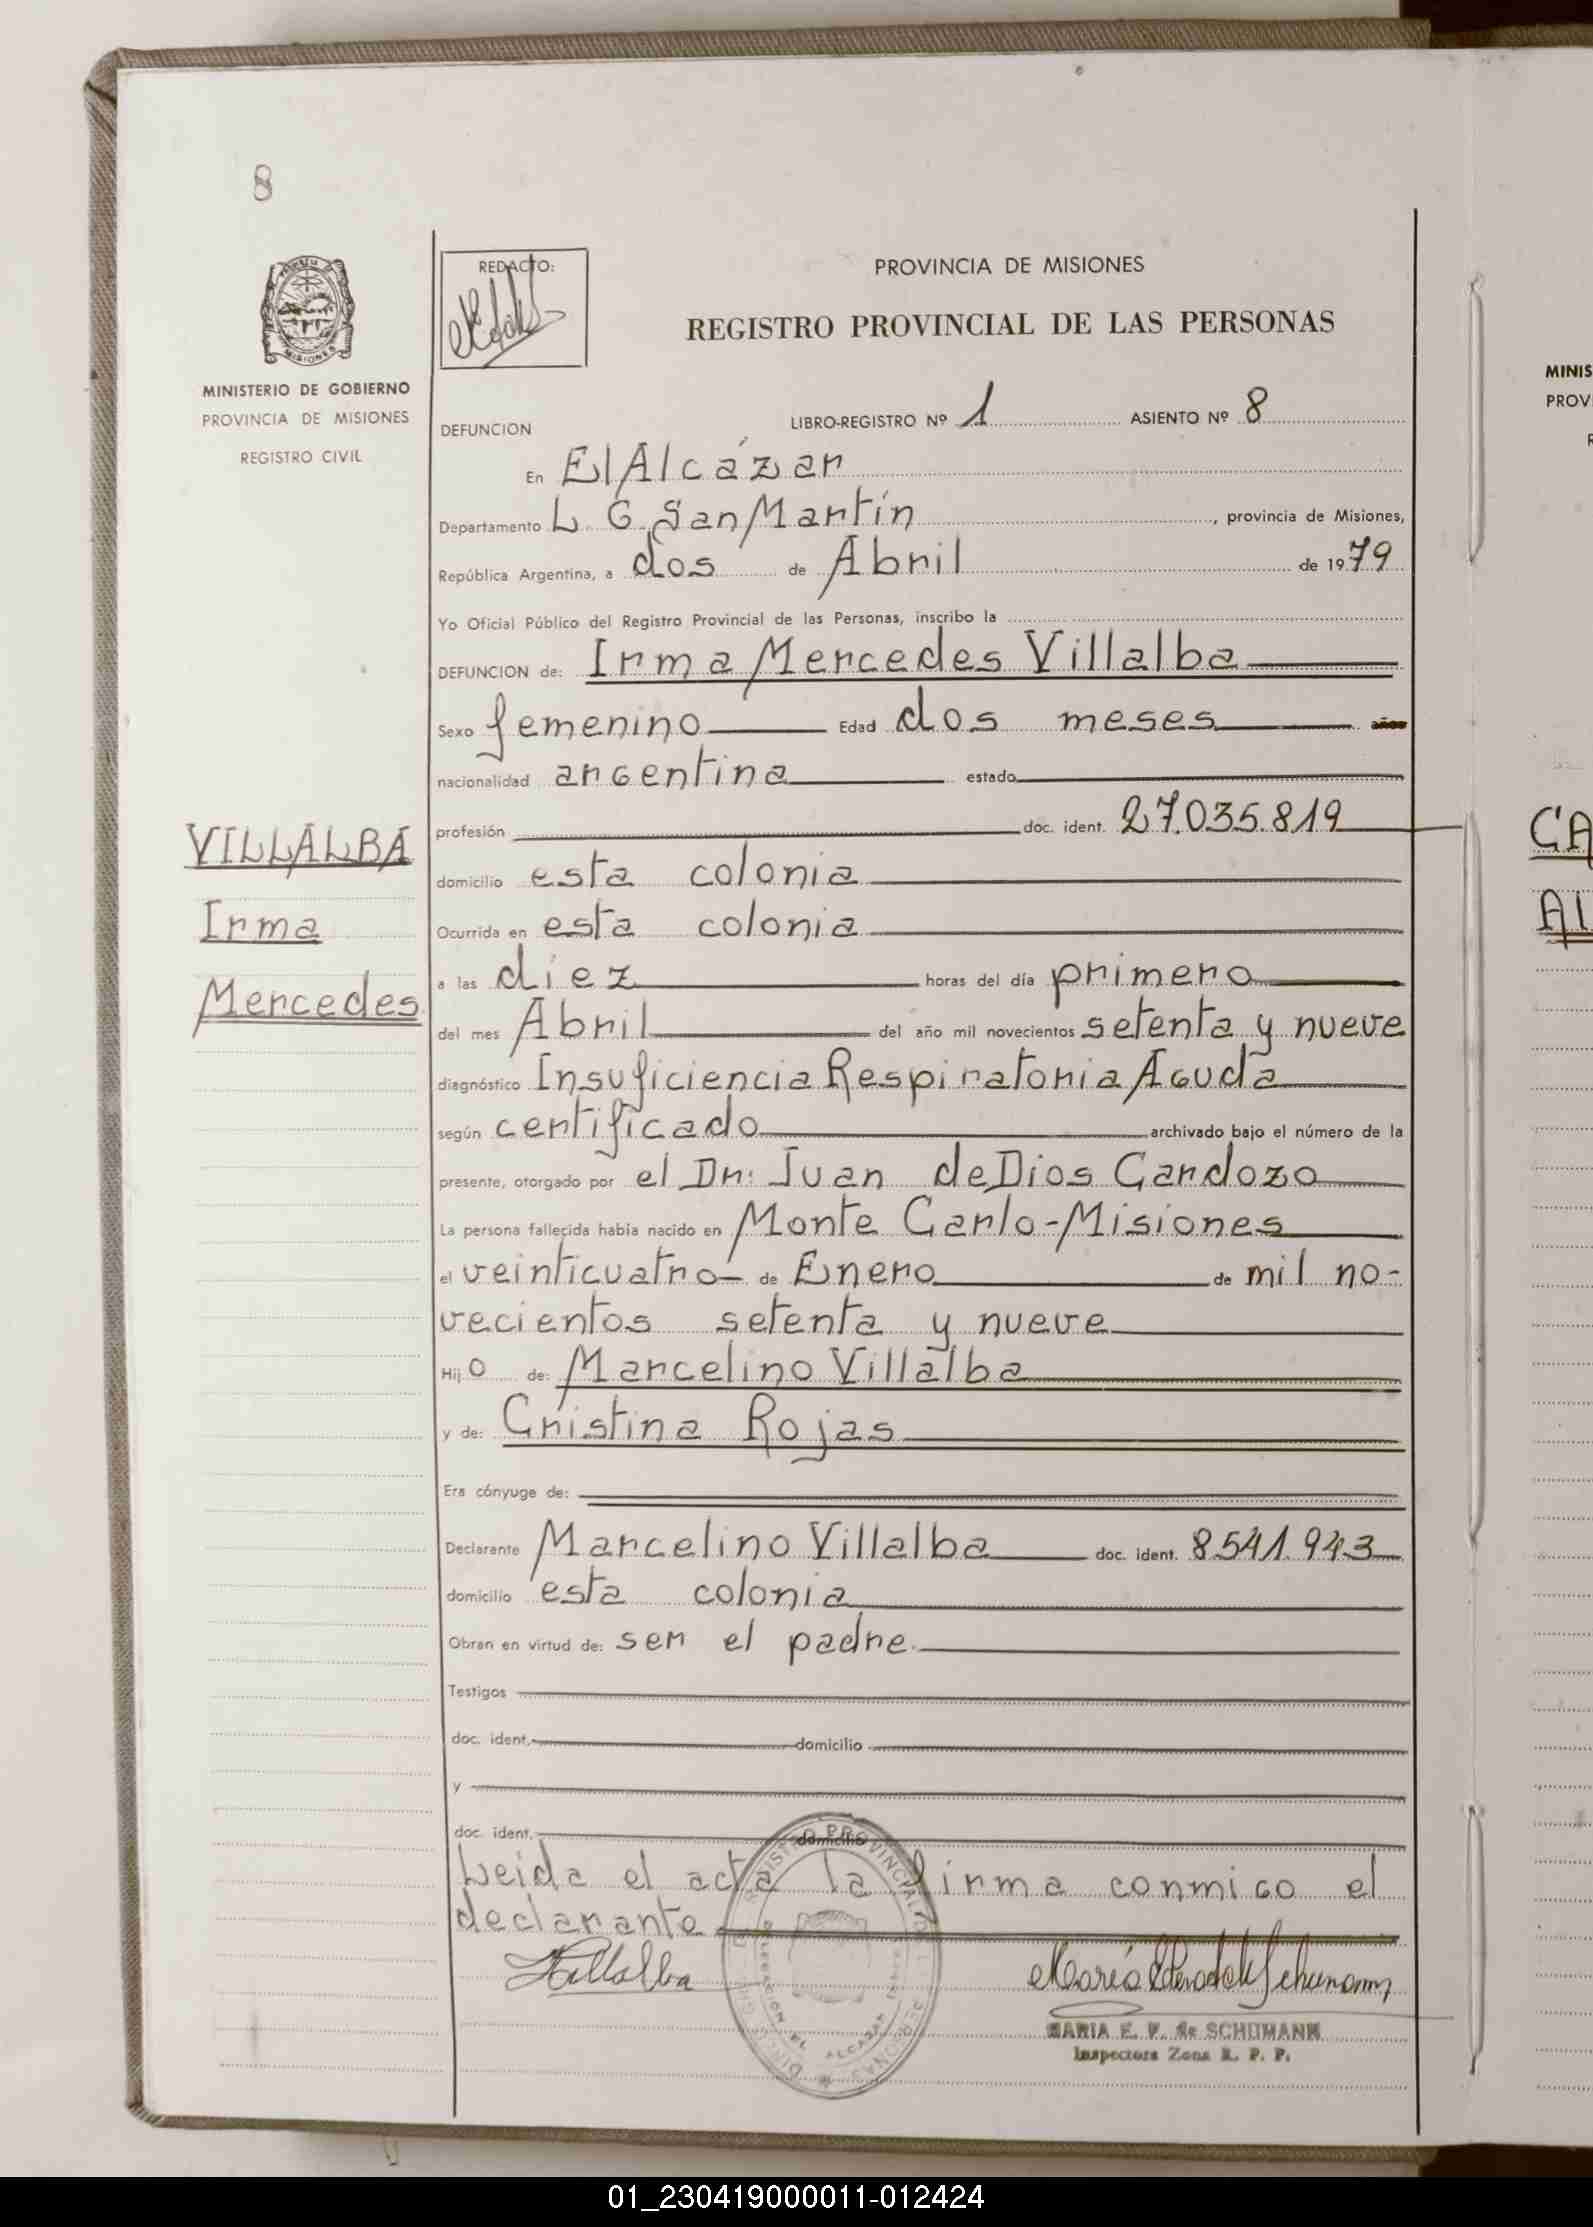 8
PROVINCIA DE MISIONES
REGISTRO PROVINCIAL DE LAS PERSONAS
REDACTO:
MINISTERIO DE GOBIERNO
PROVINCIA DE MISIONES
REGISTRO CIVIL
DEFUNCION LIBRO-REGISTRO Nº 1 ASIENTO Nº 8
En El Alcázar
Departamento L. G. San Martín, provincia de Misiones,
República Argentina, a dos de Abril de 1979
Yo Oficial Público del Registro Provincial de las Personas, inscribo la
DEFUNCION de: Irma Mercedes Villalba
Sexo femenino Edad dos meses años
nacionalidad argentina estado
profesión doc. ident. 27.035.819
VILLALBA
Irma
Mercedes
domicilio esta colonia
Ocurrida en esta colonia
a las diez horas del día primero
del mes Abril del año mil novecientos setenta y nueve
diagnóstico Insuficiencia Respiratoria Aguda
según certificado archivado bajo el número de la
presente, otorgado por el Dr. Juan de Dios Cardozo
La persona fallecida había nacido en Monte Carlo-Misiones
el veinticuatro de Enero de mil no-
vecientos setenta y nueve
Hijo de: Marcelino Villalba
y de: Cristina Rojas
Era cónyuge de:
Declarante Marcelino Villalba doc. ident. 8541.943
domicilio esta colonia
Obran en virtud de: ser el padre.
Testigos
doc. ident. domicilio
y
doc. ident. domicilio
Leida el acta la firma conmigo el
declarante
Villalba
MARIA E. P. de SCHUMANN
Inspectora Zona R. P. P.
MINIS
PROV
R
CA
Al
01_230419000011-012424